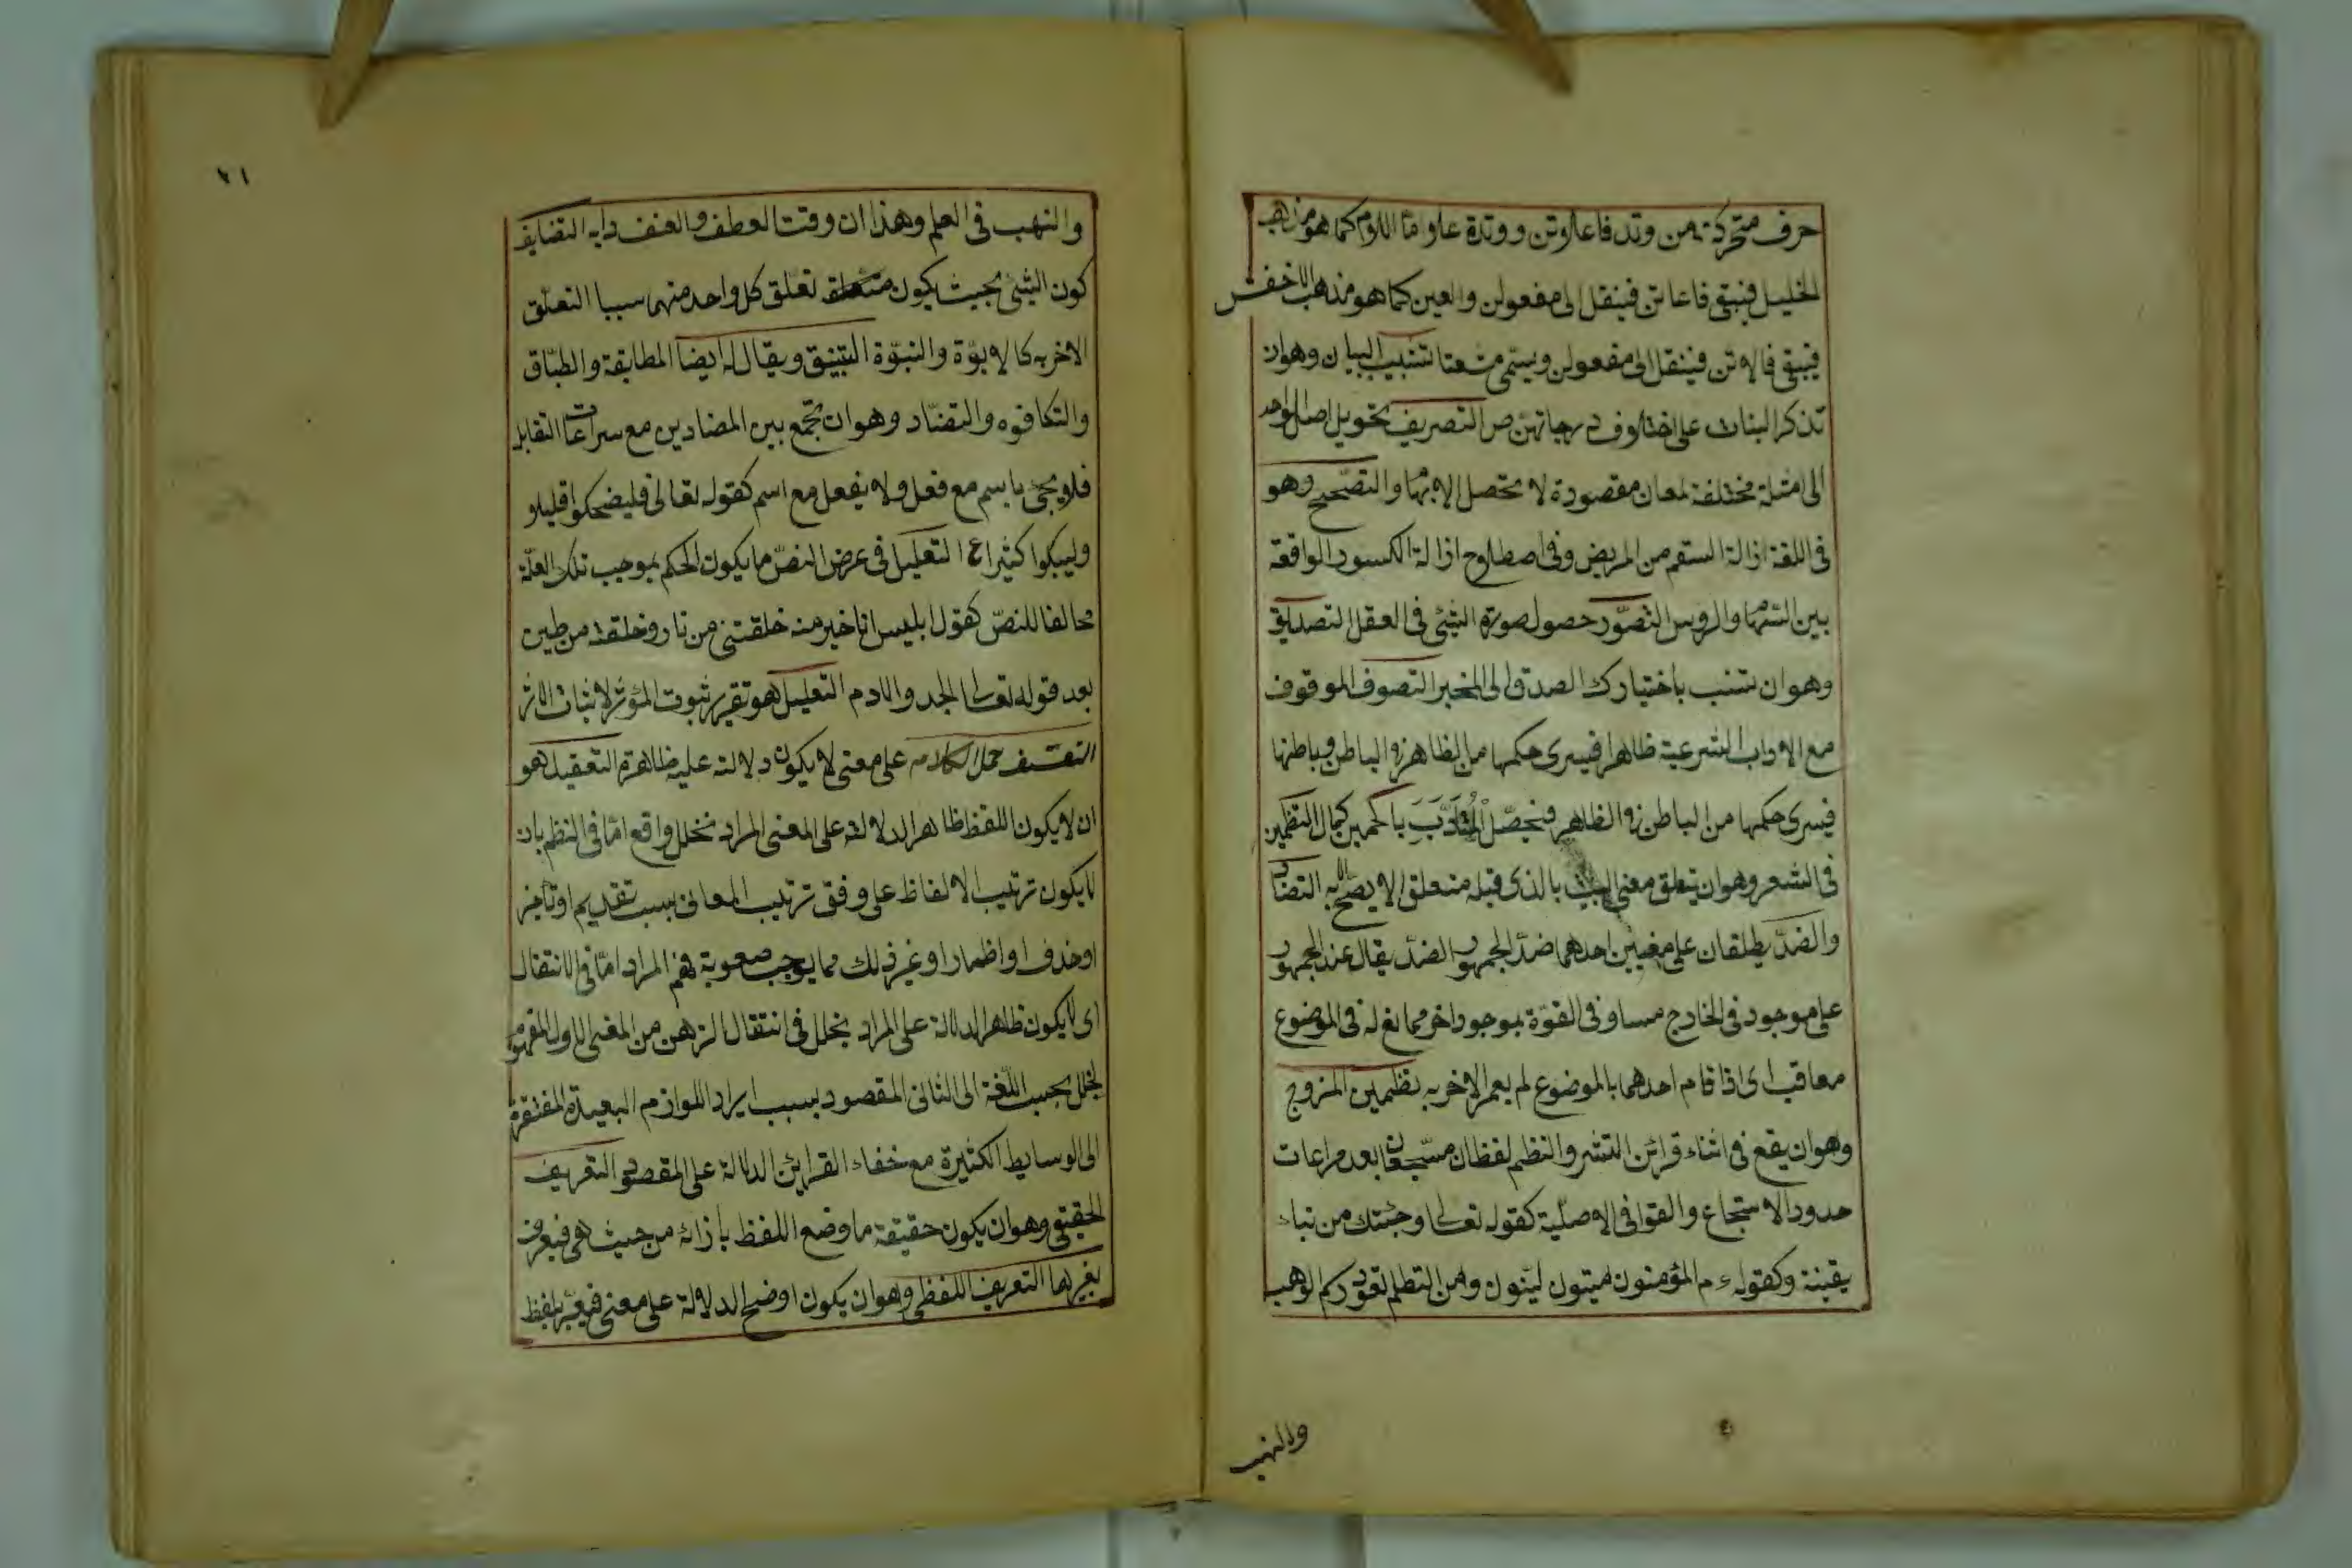 حرف متحركة من وتد فاعلاتن ووتدة علا واما اللام كما هو مذهب
الخليل فيبقى فاعاتن فينقل الى مفعولن والعين كما هو مذهب الاخفش
فيبقى فالاتن فينقل الى مفعولن ويسمى مشعتا تشبيب البيان وهو ان
تذكر البنات على اختلاف درجاتهن ص التصريف تحويل اصل الواحد
الى امثلة مختلفة لمعان مقصودة لا تحصل الا بها والتصحيح وهو
فى اللغة ازالة السقم من المريض وفى اصطلاح ازالة الكسور الواقعة
بين السهام والروس التصور حصول صورة الشئ فى العقل التصديق
وهو ان تنسب باختيارك الصدق الى المخبر التصوف الموقوف
مع الاداب الشرعية ظاهرا فيسرى حكمها من الظاهر فى الباطن وباطنها
فيسرى حكمها من الباطن فى الظاهر فيحصل المتأدب با لحكمين كمال التظمين
فى الشعر وهو ان يتعلق معنى البيت بالذى قبله متعلق الا يصح الا به التضاد
والضد يطلقان على معنيين احدهما ضد الجمهور الضد يقال عند الجمهور
على موجود فى الخارج مساو فى القوة بموجود اخر ممانع له فى الموضوع
معاقب اى اذا قام احدهما بالموضوع لم يعم الاخر به تظمين المزوج
وهو ان يقع فى اثناء قرائن النثر والنظم لفظان مسجعان بعد مراعات
حدود الاسجاع والقوافى الاصلية كقوله تعالى وجئتك من نباء
يقينة وكقوله ءم المؤمنون هينون لينون ومن التظلم تعود ركم الوهب
والنهب
٢١
والنهب فى العلم وهذا ان وقت العطف والعنف دابه التضايف
كون الشئ بحيث يكون متعلق تعلق كل واحد منهما سببا التعلق
الاخر به كالابوة والنبوة التبنيق ويقال له ايضا المطابقة والطباق
والتكافوه والتضاد وهو ان تجمع بين المضادين مع سراعات التقابل
فلا يجئ باسم مع فعل ولا يفعل مع اسم كقوله تعالى فليضحكوا قليلا و
وليبكوا كثيرا ع التعليل فى عرض النص ما يكون الحكم بموجب تلك العلة
مخالفا للنص كقول ابليس انا خير منه خلقتنى من نار وخلقته من طين
بعد قوله تعالى اسجدوا لادم التعليل هو تقرير ثبوت المؤثر لاثبات الاثر
التعسف حمل الكلام على معنى لا يكون دلالته عليه ظاهرة التعقيد هو
ان لا يكون اللفظ ظاهر الدلالة على المعنى المراد نخلل واقع اما فى النظم بان
لا يكون ترتيب الالفاظ على وفق ترتيب المعانى بسبب تقديم او تأخير
او حذف او اظمار او غير ذلك مما يوجب صعوبة فهم المراد اما فى الانتقال
اى لا يكون ظاهر الدلالة على المراد بخلل فى انتقال الذهن من المعنى الاول المفهوم
لخلل بحسب اللغة الى الثانى المقصود بسبب ايراد اللوازم البعيدة المفتقرة
الى الوسايط الكثيرة مع خفاء القراين الدالة على المقصود التعريف
الحقيقى وهو ان يكون حقيقة ما وضع اللفظ بازائه من حيث هى فيعرف
بغيرها التعريف اللفظى وهو ان يكون اوضح الدلالة على معنى فيعبر بلفظ